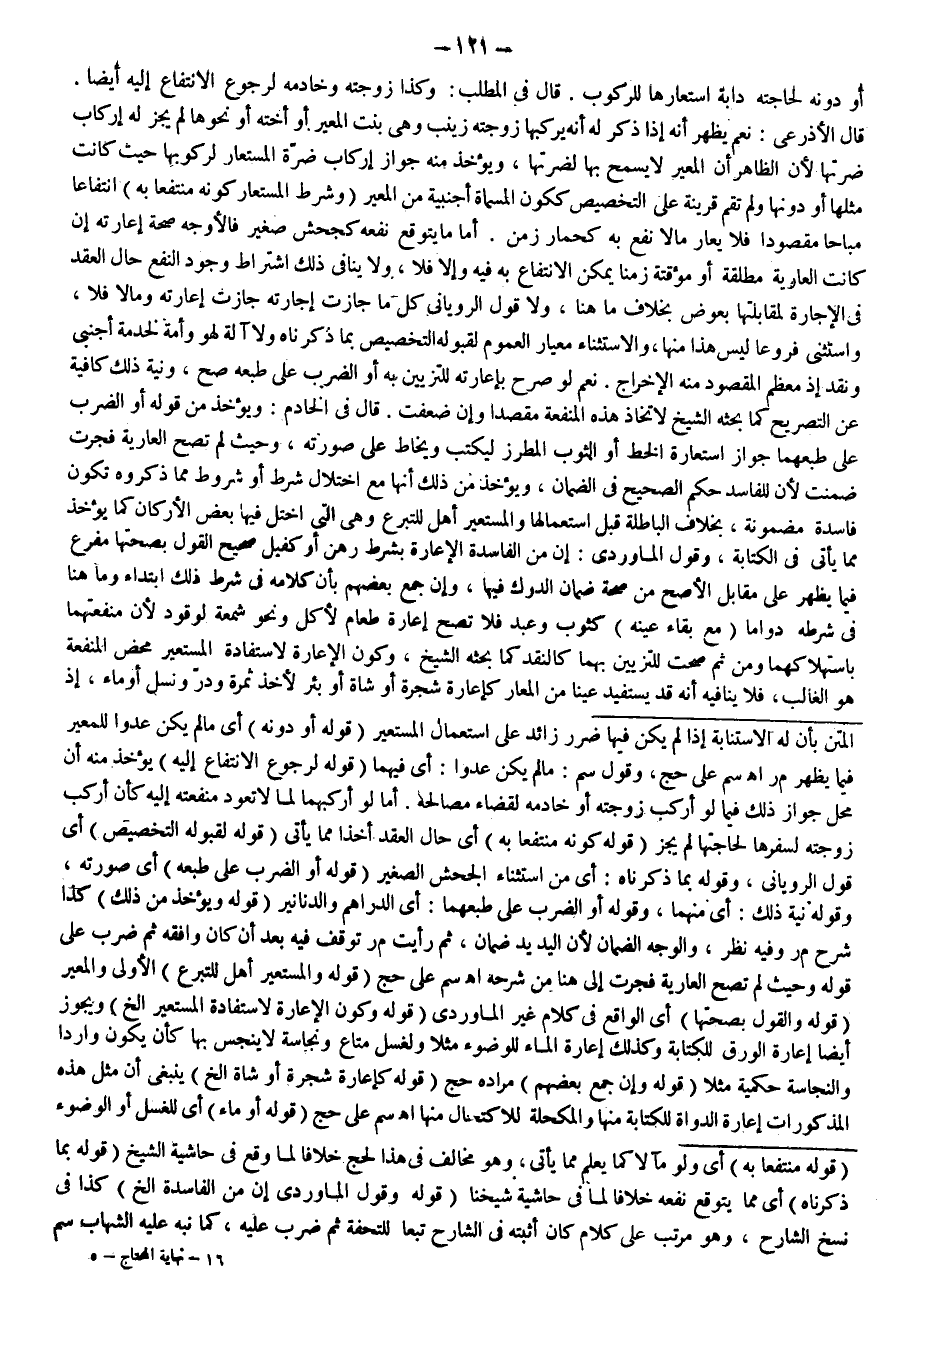 — ١٢١ —
أو دونه لحاجته دابة استعارها للركوب . قال فى المطلب : وكذا زوجته وخادمه لرجوع الانتفاع إليه أيضا .
قال الأذرعى : نعم يظهر أنه إذا ذكر له أنه يركبها زوجته زينب وهى بنت المعير أو أخته أو نحوها لم يجز له إركاب
ضرتها لأن الظاهر أن المعير لايسمح بها لضرتها ، ويؤخذ منه جواز إركاب ضرّة المستعار لركوبها حيث كانت
مثلها أو دونها ولم تقم قرينة على التخصيص ككون المسماة أجنبية من المعير ( وشرط المستعار كونه منتفعا به ) انتفاعا
مباحا مقصودا فلا يعار مالا نفع به كحمار زمن . أما مايتوقع نفعه كجحش صغير فالأوجه صحة إعارته إن
كانت العارية مطلقة أو مؤقتة زمنا يمكن الانتفاع به فيه وإلا فلا ، ولا ينافى ذلك اشتراط وجود النفع حال العقد
فى الإجارة لمقابلتها بعوض بخلاف ما هنا ، ولا قول الرويانى كل ما جازت إجارته جازت إعارته ومالا فلا ،
واستثنى فروعا ليس هذا منها ، والاستثناء معيار العموم لقبوله التخصيص بما ذكرناه ولا آلة لهو وأمة لخدمة أجنبى
ونقد إذ معظم المقصود منه الإخراج . نعم لو صرح بإعارته للتزيين به أو الضرب على طبعه صح ، ونية ذلك كافية
عن التصريح كما بحثه الشيخ لاتخاذ هذه المنفعة مقصدا وإن ضعفت . قال فى الخادم : ويؤخذ من قوله أو الضرب
على طبعهما جواز استعارة الخط أو الثوب المطرز ليكتب ويخاط على صورته ، وحيث لم تصح العارية فجرت
ضمنت لأن للفاسد حكم الصحيح فى الضمان ، ويؤخذ من ذلك أنها مع اختلال شرط أو شروط مما ذكروه تكون
فاسدة مضمونة ، بخلاف الباطلة قبل استعمالها والمستعير أهل للتبرع وهى التى اختل فيها بعض الأركان كما يؤخذ
مما يأتى فى الكتابة ، وقول الماوردى : إن من الفاسدة الإعارة بشرط رهن أو كفيل صحيح القول بصحتها مفرع
فيما يظهر على مقابل الأصح من صحة ضمان الدرك فيها ، وإن جمع بعضهم بأن كلامه فى شرط ذلك ابتداء وما هنا
فى شرطه دواما ( مع بقاء عينه ) كثوب وعبد فلا تصح إعارة طعام لأكل ونحو شمعة لوقود لأن منفعتهما
باستهلاكهما ومن ثم صحت للتزيين بهما كالنقد كما بحثه الشيخ ، وكون الإعارة لاستفادة المستعير محض المنفعة
هو الغالب ، فلا ينافيه أنه قد يستفيد عينا من المعار كإعارة شجرة أو شاة أو بئر لأخذ ثمرة ودرّ ونسل أوماء ، إذ
المتن بأن له الاستنابة إذا لم يكن فيها ضرر زائد على استعمال المستعير ( قوله أو دونه ) أى مالم يكن عدوا للمعير
فيما يظهر م‍ر اه‍ سم على حج ، وقول سم : مالم يكن عدوا : أى فيهما ( قوله لرجوع الانتفاع إليه ) يؤخذ منه أن
محل جواز ذلك فيما لو أركب زوجته أو خادمه لقضاء مصالحه . أما لو أركبهما لما لاتعود منفعته إليه كأن أركب
زوجته لسفرها لحاجتها لم يجز ( قوله كونه منتفعا به ) أى حال العقد أخذا مما يأتى ( قوله لقبوله التخصيص ) أى
قول الرويانى ، وقوله بما ذكرناه : أى من استثناء الجحش الصغير ( قوله أو الضرب على طبعه ) أى صورته ،
وقوله نية ذلك : أى منهما ، وقوله أو الضرب على طبعهما : أى الدراهم والدنانير ( قوله ويؤخذ من ذلك ) كذا
شرح م‍ر وفيه نظر ، والوجه الضمان لأن اليد يد ضمان ، ثم رأيت م‍ر توقف فيه بعد أن كان وافقه ثم ضرب على
قوله وحيث لم تصح العارية فجرت إلى هنا من شرحه اه‍ سم على حج ( قوله والمستعير أهل للتبرع ) الأولى والمعير
( قوله والقول بصحتها ) أى الواقع فى كلام غير الماوردى ( قوله وكون الإعارة لاستفادة المستعير الخ ) ويجوز
أيضا إعارة الورق للكتابة وكذلك إعارة الماء للوضوء مثلا ولغسل متاع ونجاسة لاينجس بها كأن يكون واردا
والنجاسة حكمية مثلا ( قوله وإن جمع بعضهم ) مراده حج ( قوله كإعارة شجرة أو شاة الخ ) ينبغى أن مثل هذه
المذكورات إعارة الدواة للكتابة منها والمكحلة للاكتحال منها اه‍ سم على حج ( قوله أو ماء ) أى للغسل أو الوضوء
( قوله منتفعا به ) أى ولو مآلا كما يعلم مما يأتى ، وهو مخالف فى هذا لحج خلافا لما وقع فى حاشية الشيخ ( قوله بما
ذكرناه ) أى مما يتوقع نفعه خلافا لما فى حاشية شيخنا ( قوله وقول الماوردى إن من الفاسدة الخ ) كذا فى
نسخ الشارح ، وهو مرتب على كلام كان أثبته فى الشارح تبعا للتحفة ثم ضرب عليه ، كما نبه عليه الشهاب سم
١٦ - نهاية المحتاج - ٥